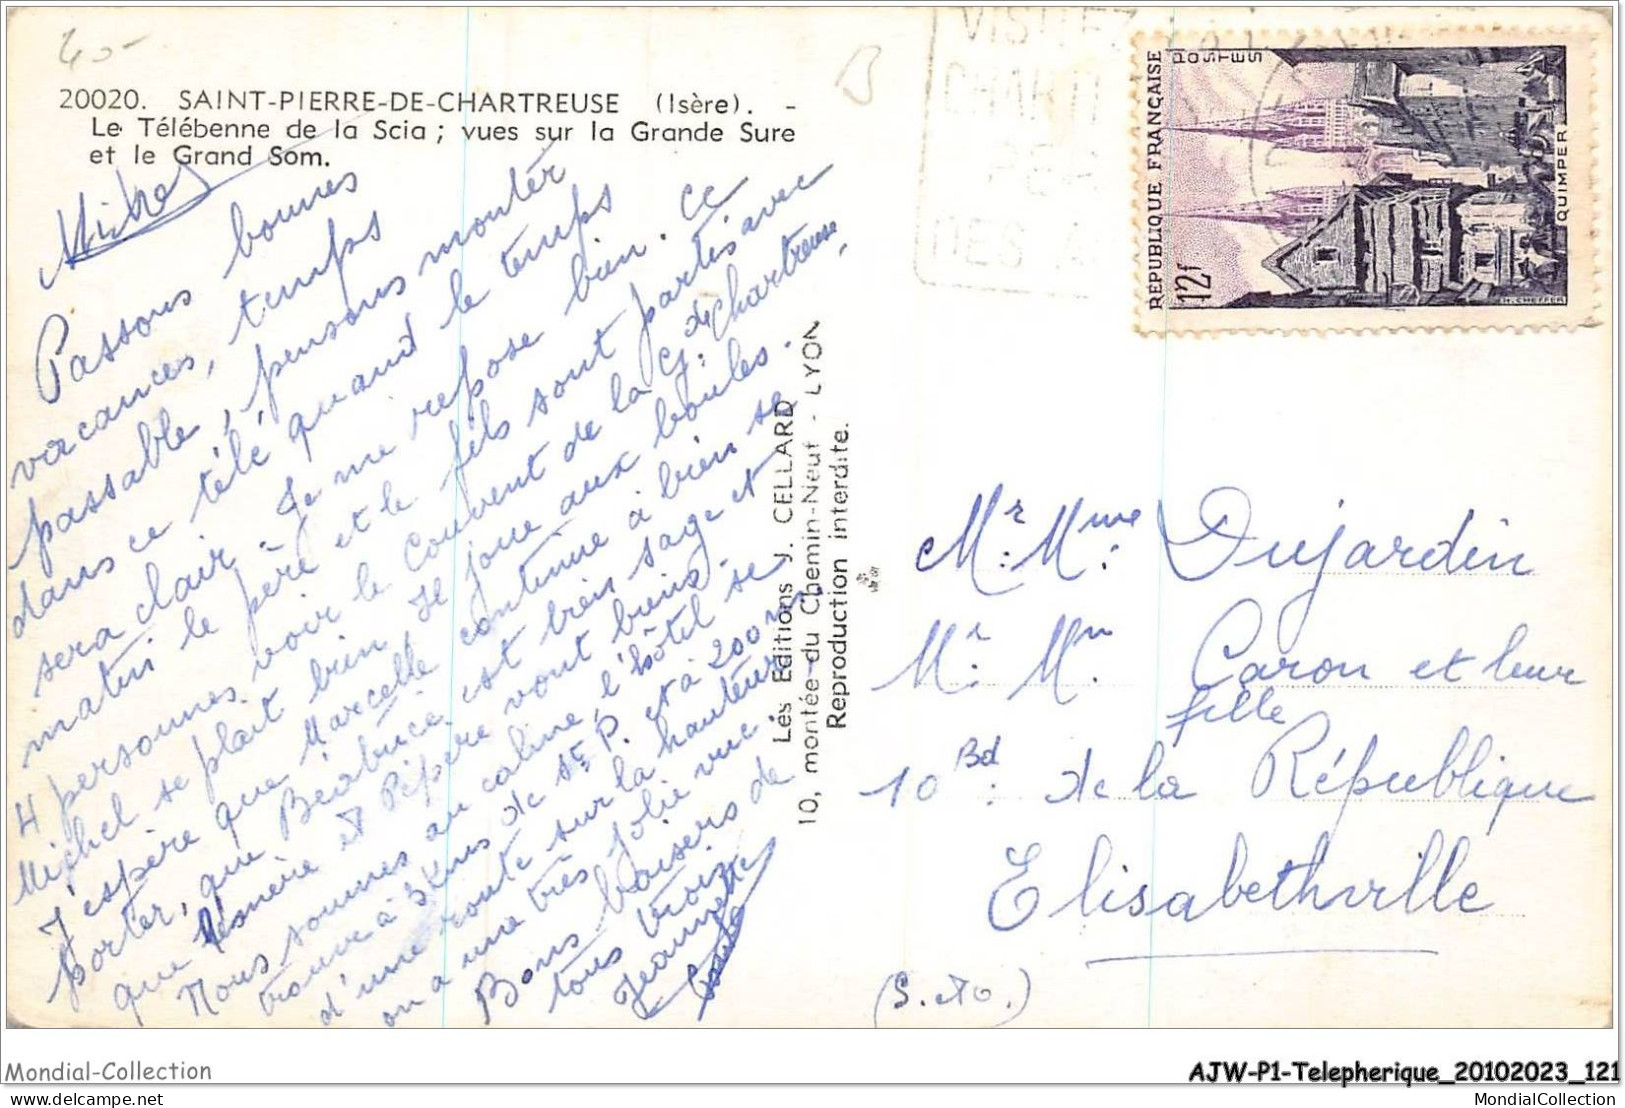 40-
20020. SAINT-PIERRE-DE-CHARTREUSE (Isère). -
Le Télébenne de la Scia ; vues sur la Grande Sure
et le Grand Som.
Passons bonnes
vacances, temps
passable, pensons monter
dans ce télé quand le temps
sera clair. Je me repose bien. Ce
matin le père et le fils sont partis avec
4 personnes voir le Couvent de la G. de Chartreuse.
Michel se plait bien, il joue aux boules.
J'espère que Marcelle continue à bien se
porter, que Béatrice est bien sage et
que Mémère et Pépère vont bien.
Nous sommes au calme, l'hôtel se
trouve à 3 kms de St P. et à 200 m
d'une route sur la hauteur
on a une très jolie vue.
Bons baisers de
tous trois
Jeannette
Les Editions J. CELLARD
10, montée du Chemin-Neuf - LYON
Reproduction interdite.
VISITEZ
CHART
DES A
RÉPUBLIQUE FRANÇAISE
POSTES
12f
QUIMPER
H. CHEFFER
Mr. Mme. Dujardin
Mr. Mn. Caron et leur
fille
10 Bd. de la République
Elisabethville
(S. et O.)
Mondial-Collection
delcampe.net
AJW-P1-Telepherique_20102023_121
MondialCollection